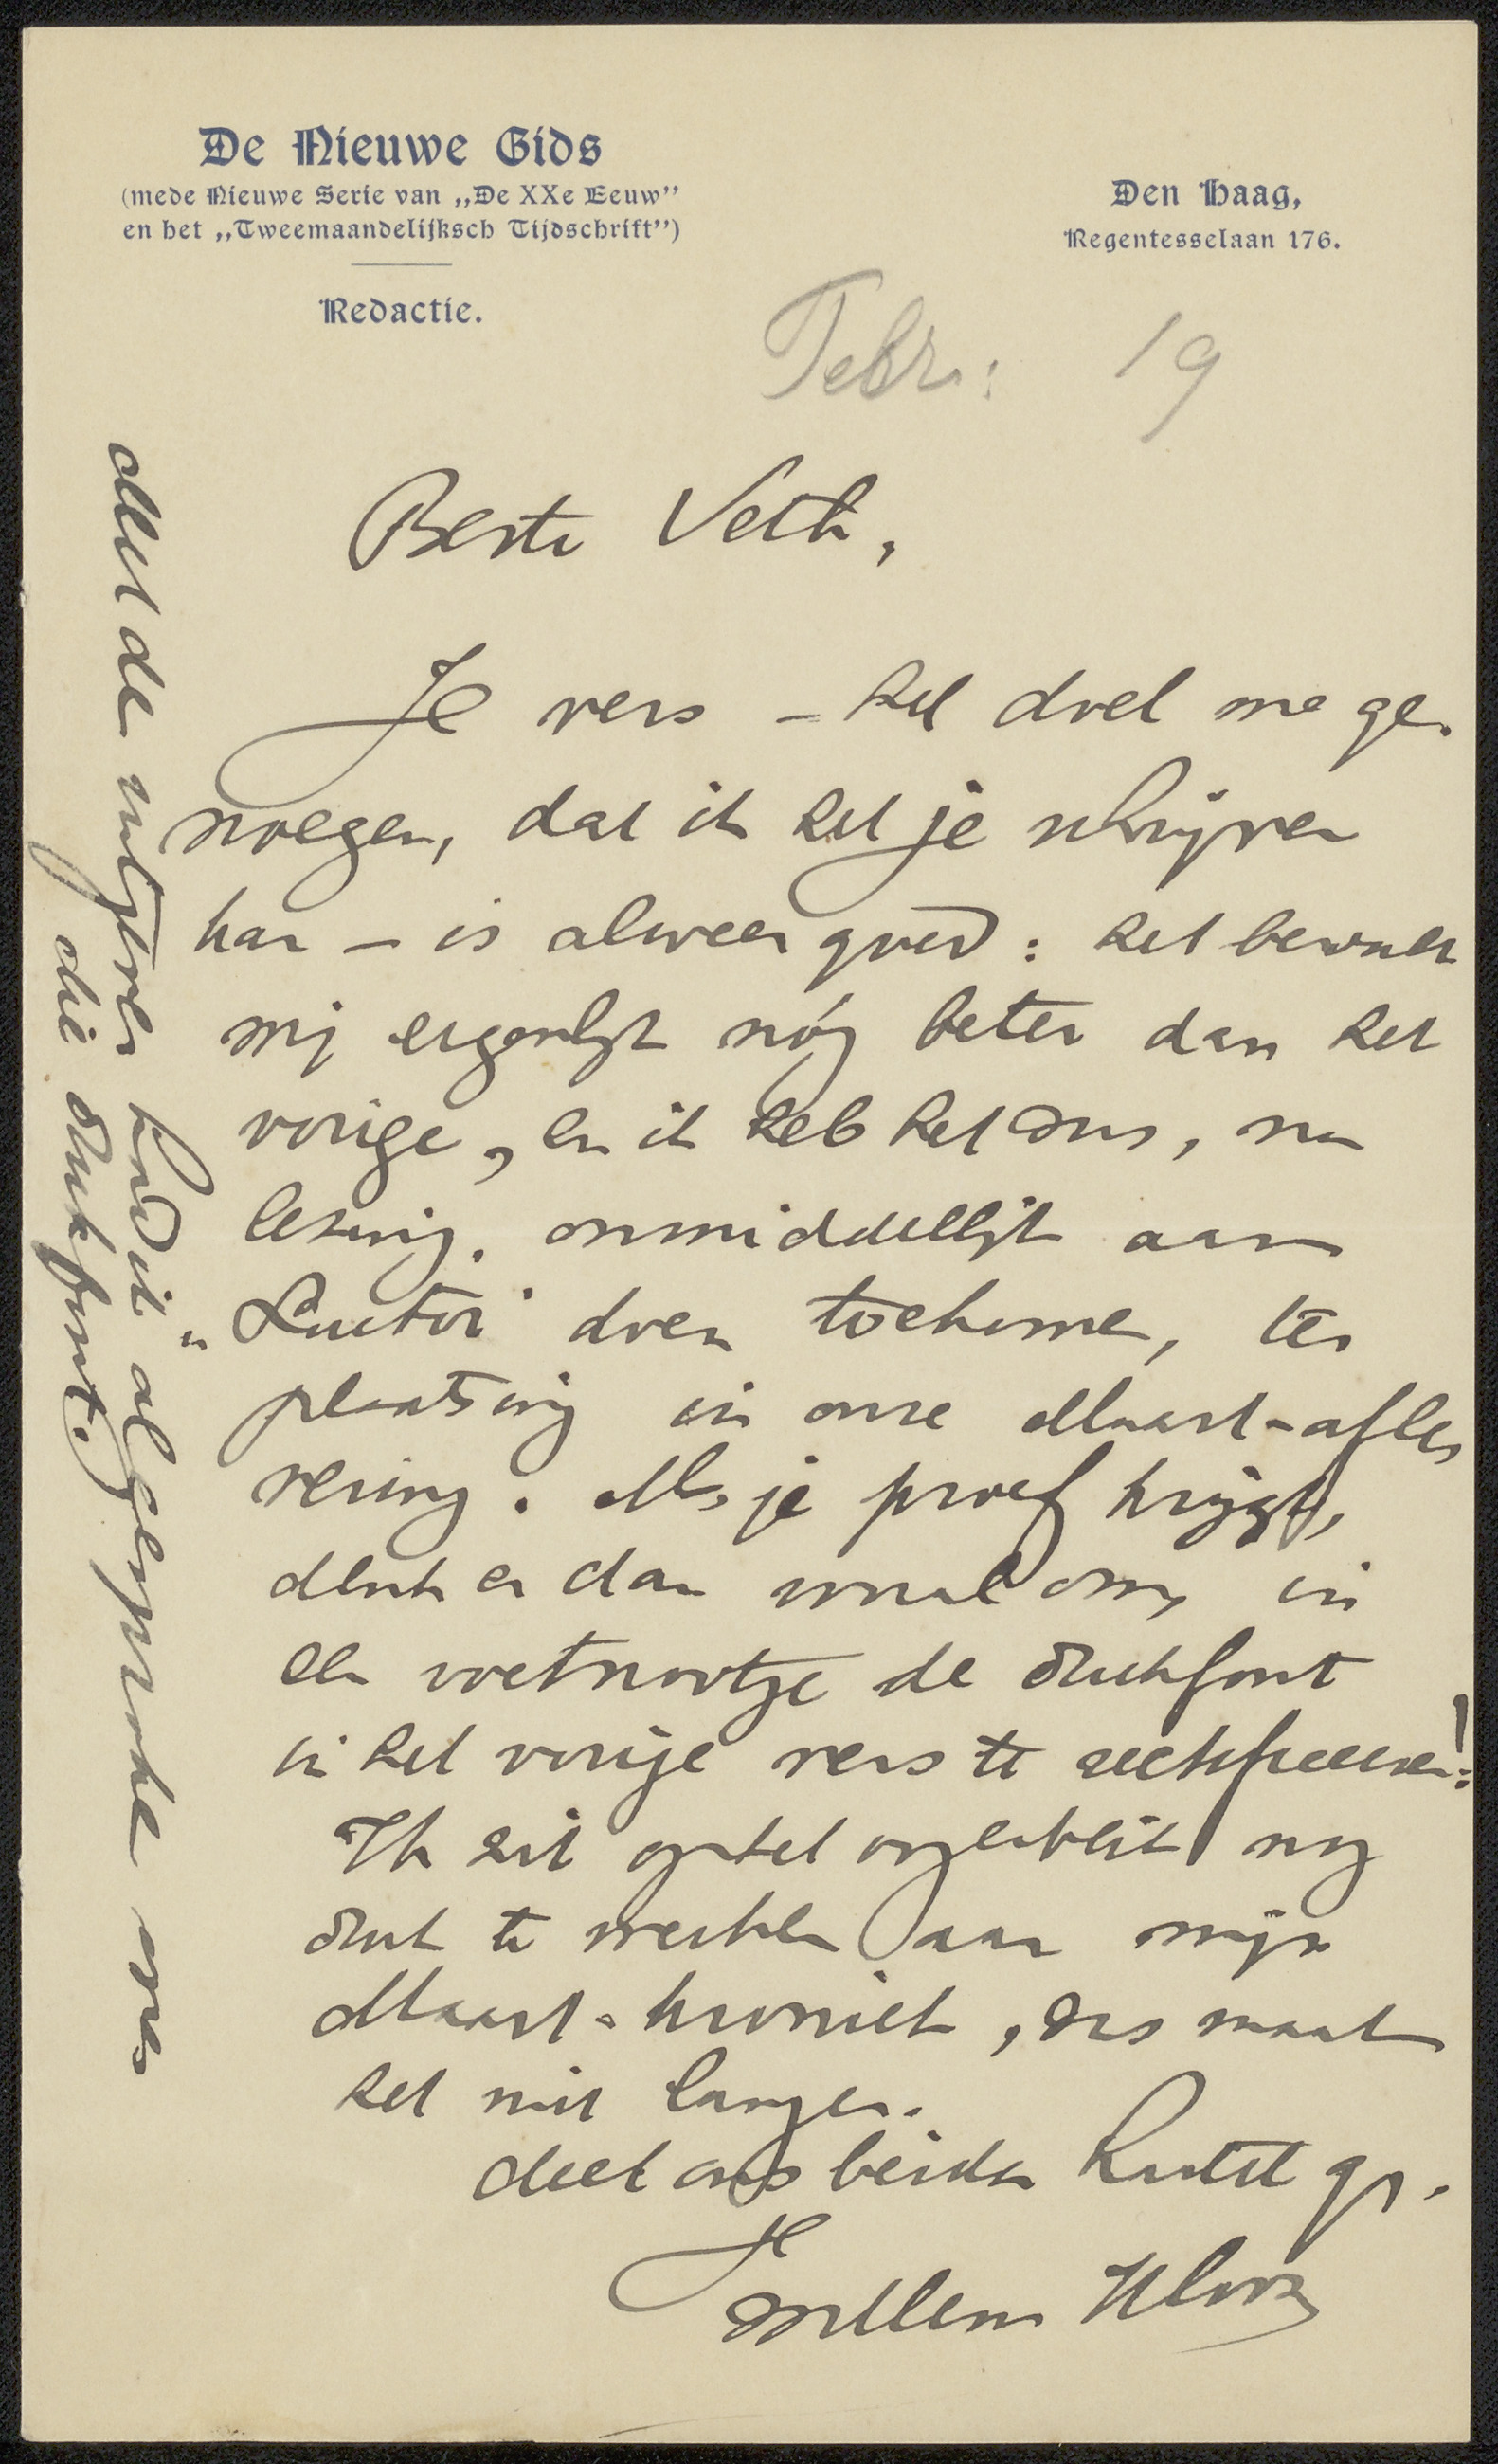 De Nieuwe Gids
(mede Nieuwe Serie van „De XXe Eeuw”
en het „Tweemaandelijksch Tijdschrift”)
Redactie.
Den Haag,
Regentesselaan 176.
Febr: 19
Beste Veth,
Je vers – het doet me ge-
noegen, dat ik het je schrijven
kan – is alweer goed: het bevalt
mij eigenlijk nóg beter dan het
vorige, en ik heb het dus, na
lezing, onmiddellijk aan
„Luctor” doen toekomen, ter
plaatsing in onze Maart-afle-
vering. Als je proef krijgt,
denk er dan vooral om, in
een voetnootje de drukfout
in het vorige vers te rechtzetten!
Ik zit op het oogenblik nog
druk te werken aan mijn
Maart-kroniek, dus maak
het niet langer.
Met ons beider hartel gr.
Je
Willem Kloos
Met de uitgever had ik al gesproken over
die drukfout.